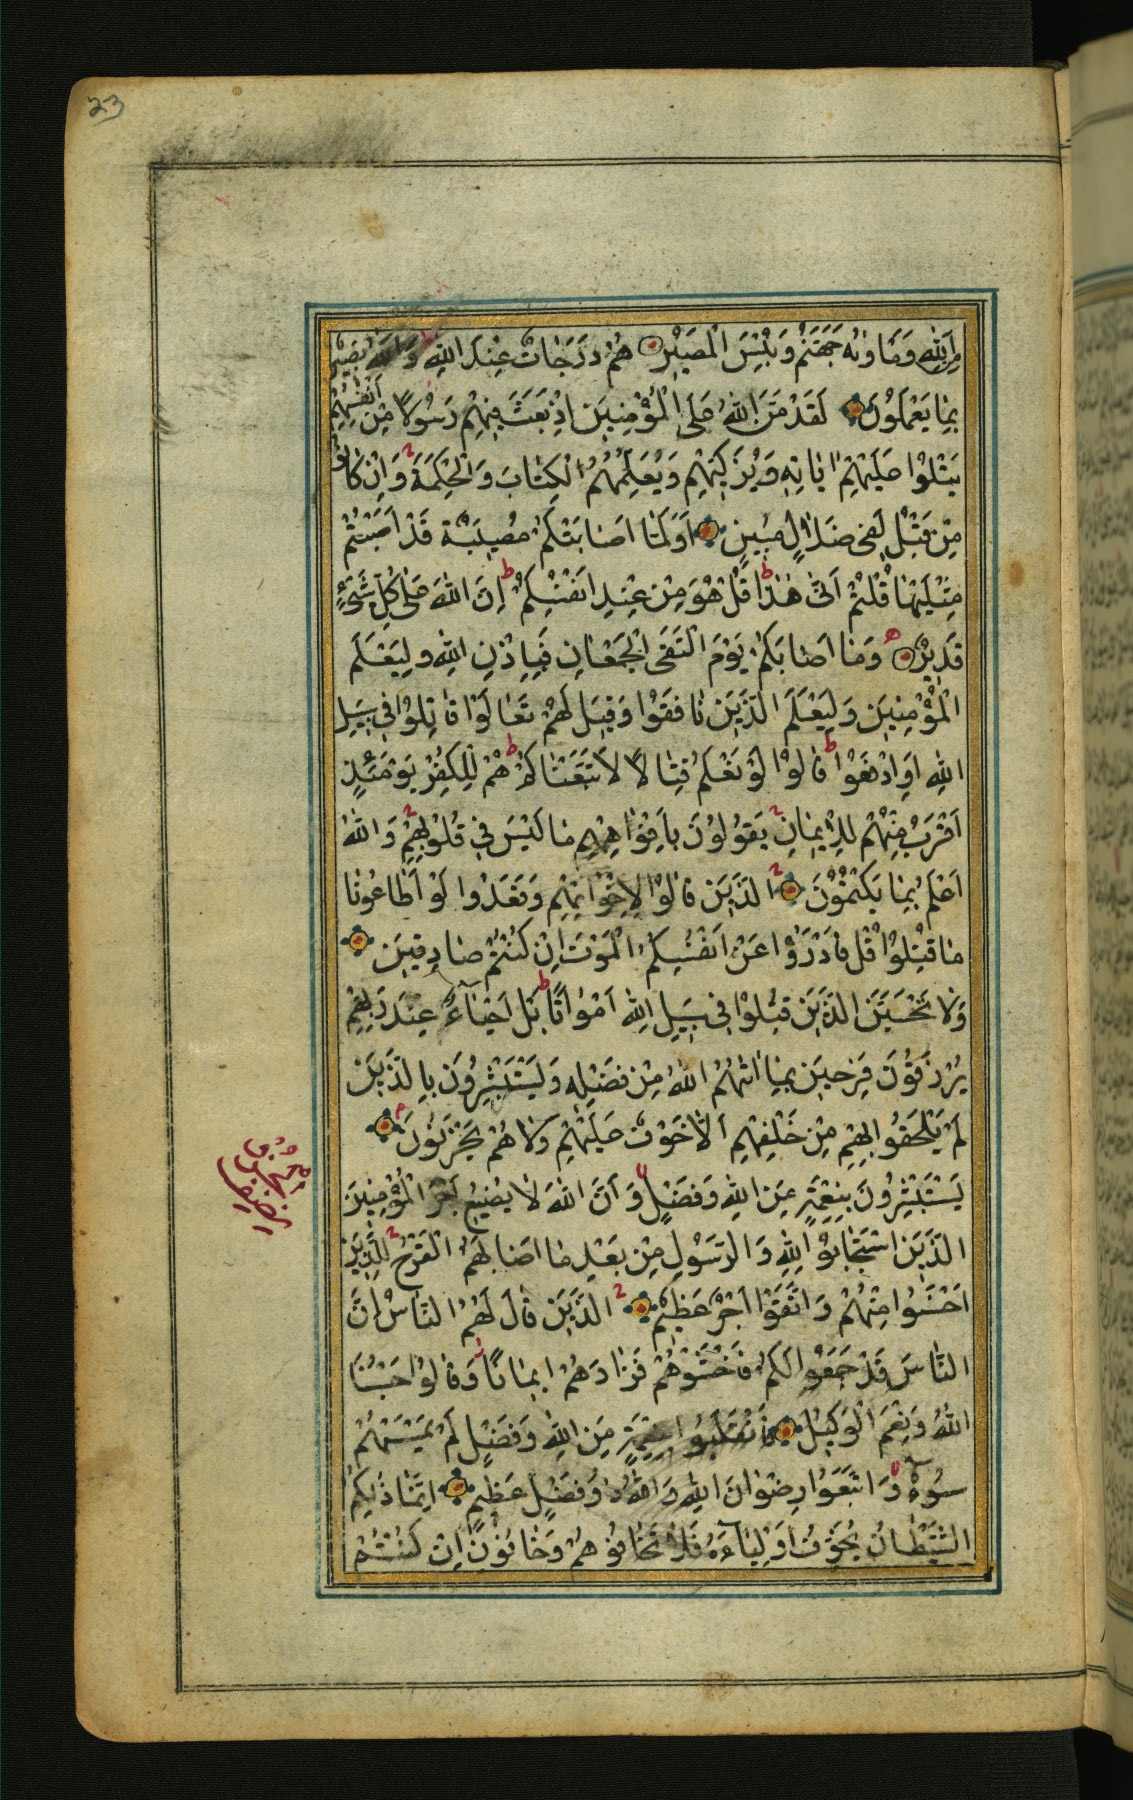 23
مِنَ اللّٰهِ وَمَاْوٰىهُ جَهَنَّمُ وَبِئْسَ الْمَصِيْرُ هُمْ دَرَجَاتٌ عِنْدَ اللّٰهِ وَاللّٰهُ بَصِيْرٌ
بِمَا يَعْمَلُوْنَ لَقَدْ مَنَّ اللّٰهُ عَلَى الْمُؤْمِنِيْنَ اِذْ بَعَثَ فِيْهِمْ رَسُوْلًا مِنْ اَنْفُسِهِمْ
يَتْلُوْا عَلَيْهِمْ اٰيَاتِهِ وَيُزَكِّيْهِمْ وَيُعَلِّمُهُمُ الْكِتَابَ وَالْحِكْمَةَ وَاِنْ كَانُوْا
مِنْ قَبْلُ لَفِى ضَلَالٍ مُبِيْنٍ اَوَلَمَّا اَصَابَتْكُمْ مُصِيْبَةٌ قَدْ اَصَبْتُمْ
مِثْلَيْهَا قُلْتُمْ اَنّٰى هٰذَا قُلْ هُوَ مِنْ عِنْدِ اَنْفُسِكُمْ اِنَّ اللّٰهَ عَلٰى كُلِّ شَىْءٍ
قَدِيْرٌ وَمَا اَصَابَكُمْ يَوْمَ الْتَقَى الْجَمْعَانِ فَبِاِذْنِ اللّٰهِ وَلِيَعْلَمَ
الْمُؤْمِنِيْنَ وَلِيَعْلَمَ الَّذِيْنَ نَافَقُوْا وَقِيْلَ لَهُمْ تَعَالَوْا قَاتِلُوْا فِى سَبِيْلِ
اللّٰهِ اَوِ ادْفَعُوْا قَالُوْا لَوْ نَعْلَمُ قِتَالًا لَاتَّبَعْنَاكُمْ هُمْ لِلْكُفْرِ يَوْمَئِذٍ
اَقْرَبُ مِنْهُمْ لِلْاِيْمَانِ يَقُوْلُوْنَ بِاَفْوَاهِهِمْ مَا لَيْسَ فِى قُلُوْبِهِمْ وَاللّٰهُ
اَعْلَمُ بِمَا يَكْتُمُوْنَ الَّذِيْنَ قَالُوْا لِاِخْوَانِهِمْ وَقَعَدُوا لَوْ اَطَاعُوْنَا
مَا قُتِلُوْا قُلْ فَادْرَؤُا عَنْ اَنْفُسِكُمُ الْمَوْتَ اِنْ كُنْتُمْ صَادِقِيْنَ
وَلَا تَحْسَبَنَّ الَّذِيْنَ قُتِلُوْا فِى سَبِيْلِ اللّٰهِ اَمْوَاتًا بَلْ اَحْيَآءٌ عِنْدَ رَبِّهِمْ
يُرْزَقُوْنَ فَرِحِيْنَ بِمَا اٰتٰهُمُ اللّٰهُ مِنْ فَضْلِهِ وَيَسْتَبْشِرُوْنَ بِالَّذِيْنَ
لَمْ يَلْحَقُوا بِهِمْ مِنْ خَلْفِهِمْ اَلَّا خَوْفٌ عَلَيْهِمْ وَلَا هُمْ يَحْزَنُوْنَ
يَسْتَبْشِرُوْنَ بِنِعْمَةٍ مِنَ اللّٰهِ وَفَضْلٍ وَاَنَّ اللّٰهَ لَا يُضِيْعُ اَجْرَ الْمُؤْمِنِيْنَ
الَّذِيْنَ اسْتَجَابُوْا لِلّٰهِ وَالرَّسُوْلِ مِنْ بَعْدِ مَا اَصَابَهُمُ الْقَرْحُ لِلَّذِيْنَ
اَحْسَنُوا مِنْهُمْ وَاتَّقَوْا اَجْرٌ عَظِيْمٌ الَّذِيْنَ قَالَ لَهُمُ النَّاسُ اِنَّ
النَّاسَ قَدْ جَمَعُوا لَكُمْ فَاخْشَوْهُمْ فَزَادَهُمْ اِيْمَانًا وَقَالُوْا حَسْبُنَا
اللّٰهُ وَنِعْمَ الْوَكِيْلُ فَانْقَلَبُوا بِنِعْمَةٍ مِنَ اللّٰهِ وَفَضْلٍ لَمْ يَمْسَسْهُمْ
سُوْءٌ وَاتَّبَعُوا رِضْوَانَ اللّٰهِ وَاللّٰهُ ذُوْ فَضْلٍ عَظِيْمٍ اِنَّمَا ذٰلِكُمُ
الشَّيْطَانُ يُخَوِّفُ اَوْلِيَآءَهُ فَلَا تَخَافُوْهُمْ وَخَافُوْنِ اِنْ كُنْتُمْ